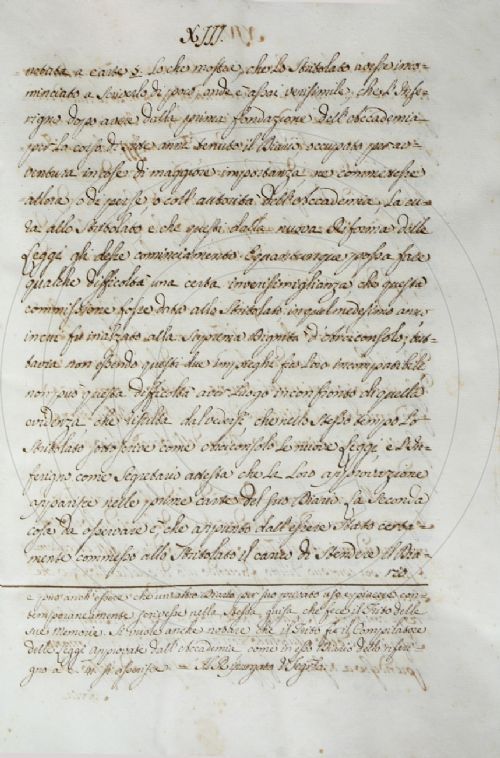 XIII.
notata a carte 5. Lo che mostra, che lo Stritolato avesse inco-
minciato a scriverlo di poco, onde è assai verisimile, che l'Infe-
rigno dopo avere dalla prima fondazione dell'Accademia
per la corsa di tre anni tenuto il Diario occupato per av-
ventura in cose di maggiore importanza ne commettesse
allora, o da per se, o coll'autorità dell'Accademia, La cu-
ra allo Stritolato e che questi dalla nuova Riforma delle
Leggi gli desse cominciamento. E quantunque possa fare
qualche difficoltà una certa inverisimiglianza che questa
commissione fosse data allo Stritolato in quel medesimo anno
in cui fu inalzato alla suprema Dignità d'Arciconsolo, tut-
tavia non essendo questi due impieghi fra Loro incompatibili
non può questa difficoltà aver Luogo in confronto di quella
evidenza che risulta dal vedersi, che nello stesso tempo Lo
Stritolato sottoscrive come Arciconsolo le nuove Leggi e l'In-
ferigno come Segretario attesta che la Loro approvazione
apparisce nelle prime carte del suo Diario. La seconda
cosa da osservare è che appunto dall'essere stato certa-
mente commesso allo Stritolato il carico di stendere il Dia-
rio
e può anch'essere che un altro Diario per suo privato uso, e piacere con-
temporaneamente scrivesse nella stessa guisa che fece il Trito delle
sue Memorie. Si vuole anche notare che il Trito fu il Compilatore
delle Leggi approvate dall'Accademia come in esso Diario dello Inferi-
gno a c. si osserva =